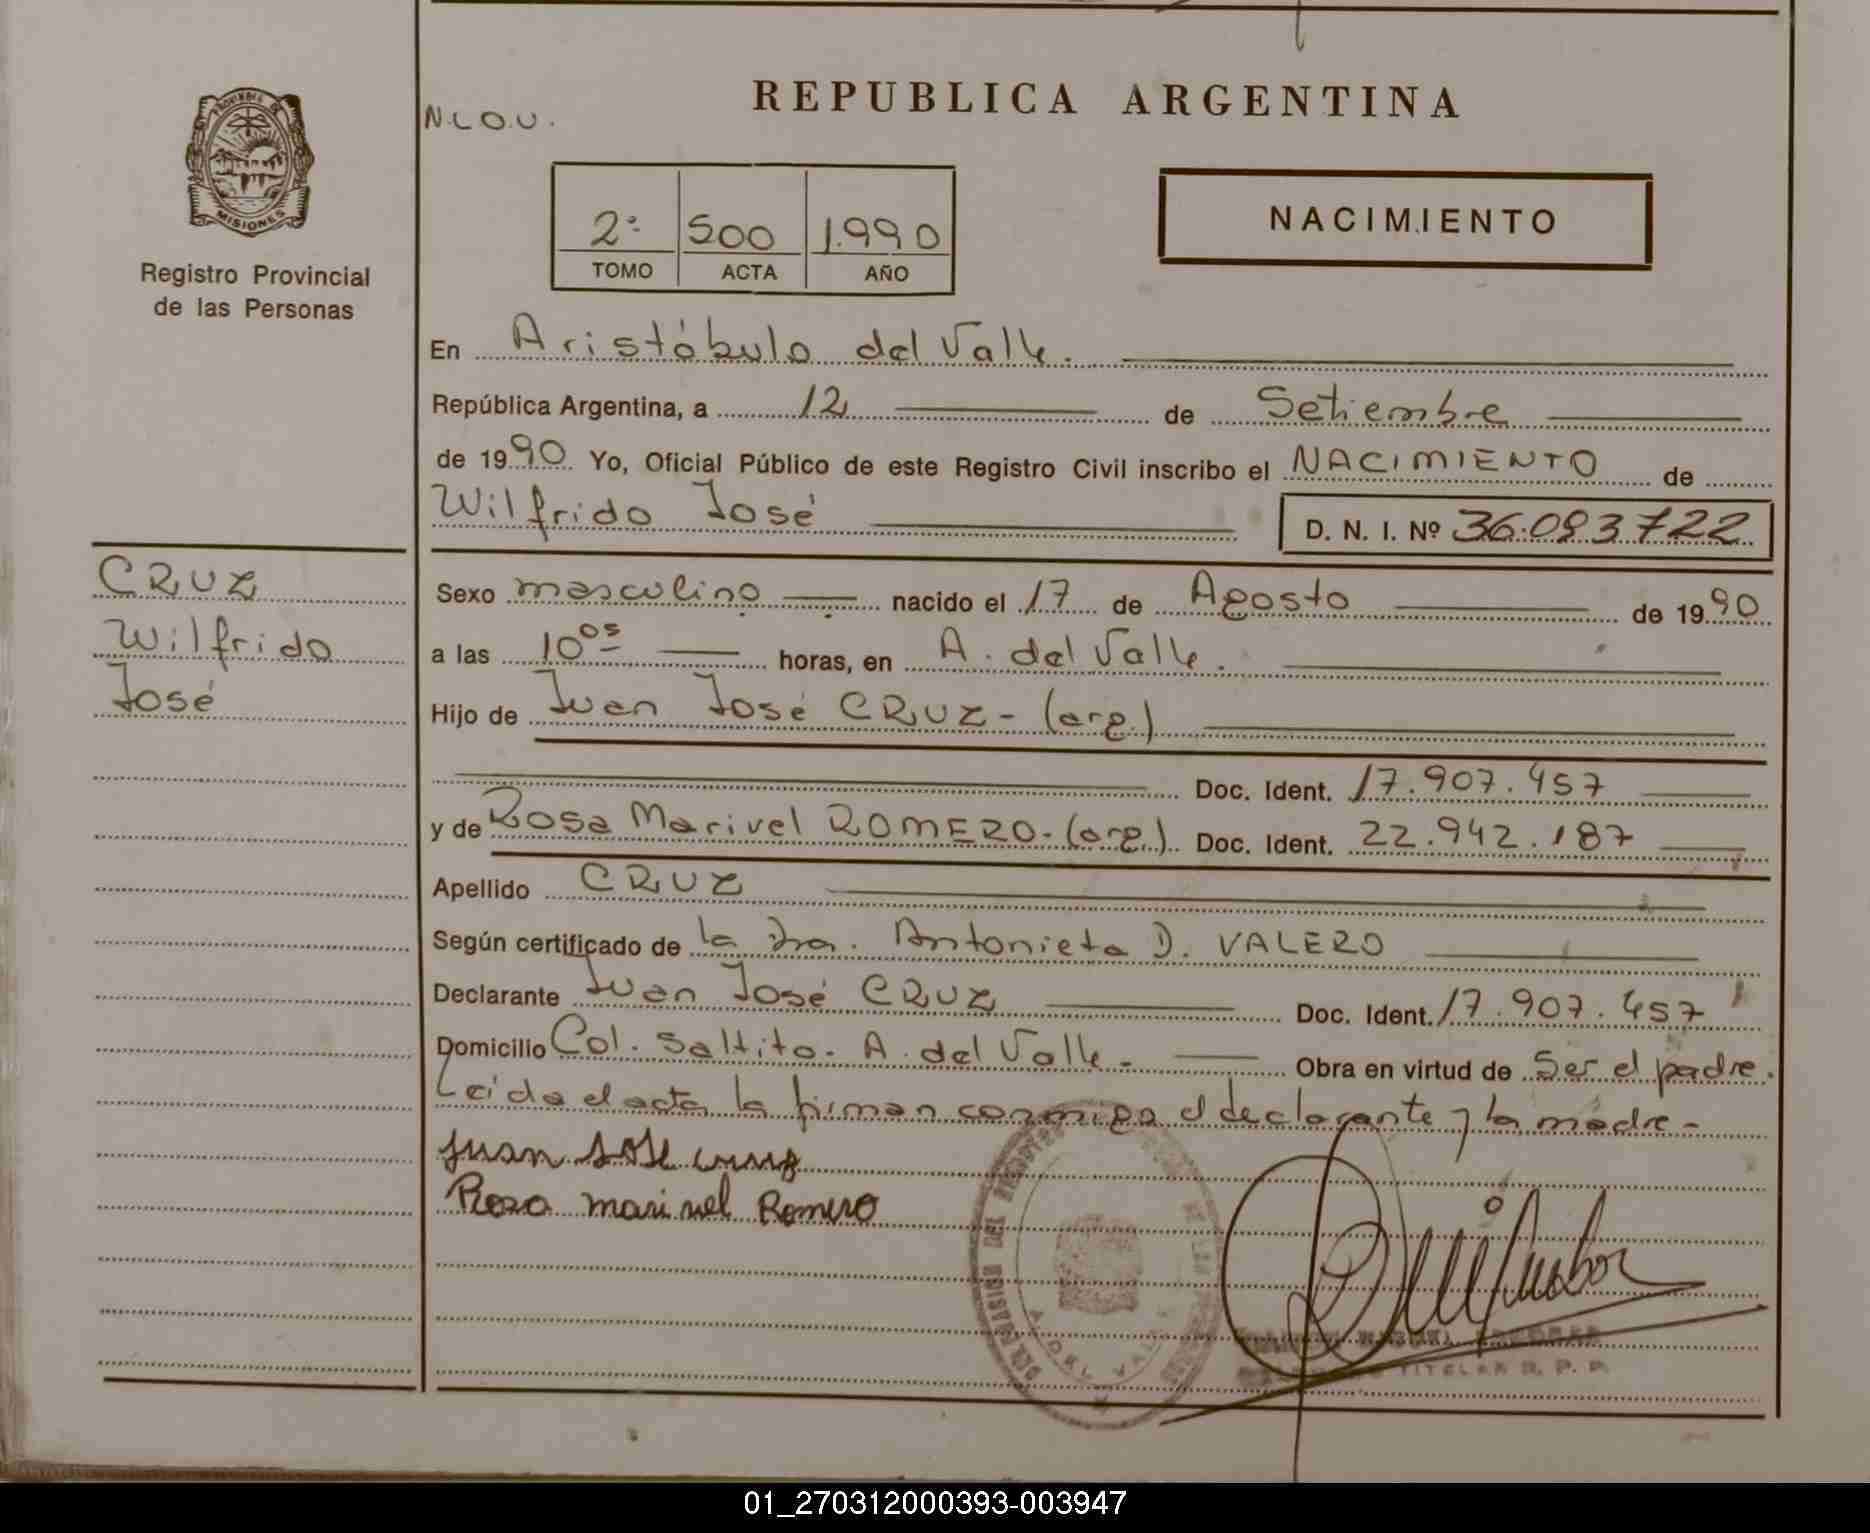 N.L.O.U.
REPUBLICA ARGENTINA
PROVINCIA DE
MISIONES
Registro Provincial
de las Personas
2º 500 1.990
TOMO ACTA AÑO
NACIMIENTO
En Aristóbulo del Valle.
República Argentina, a 12 de Setiembre
de 1990 Yo, Oficial Público de este Registro Civil inscribo el NACIMIENTO de
Wilfrido José D. N. I. Nº 36.093722
CRUZ
Wilfrido
José
Sexo masculino nacido el 17 de Agosto de 1990
a las 10 05 horas, en A. del Valle.
Hijo de Juan José CRUZ - (arg.)
Doc. Ident. 17.907.457
y de Rosa Marivel ROMERO - (arg.) Doc. Ident. 22.942.187
Apellido CRUZ
Según certificado de la Dra. Antonieta D. VALERO
Declarante Juan José CRUZ Doc. Ident. 17.907.457
Domicilio Col. Saltito - A. del Valle - Obra en virtud de Ser el padre.
Leida el acta la firman conmigo el declarante y la madre -
Juan Jose Cruz
Rosa Marivel Romero
A. DEL VALLE
TITULAR R. P. P.
01_270312000393-003947